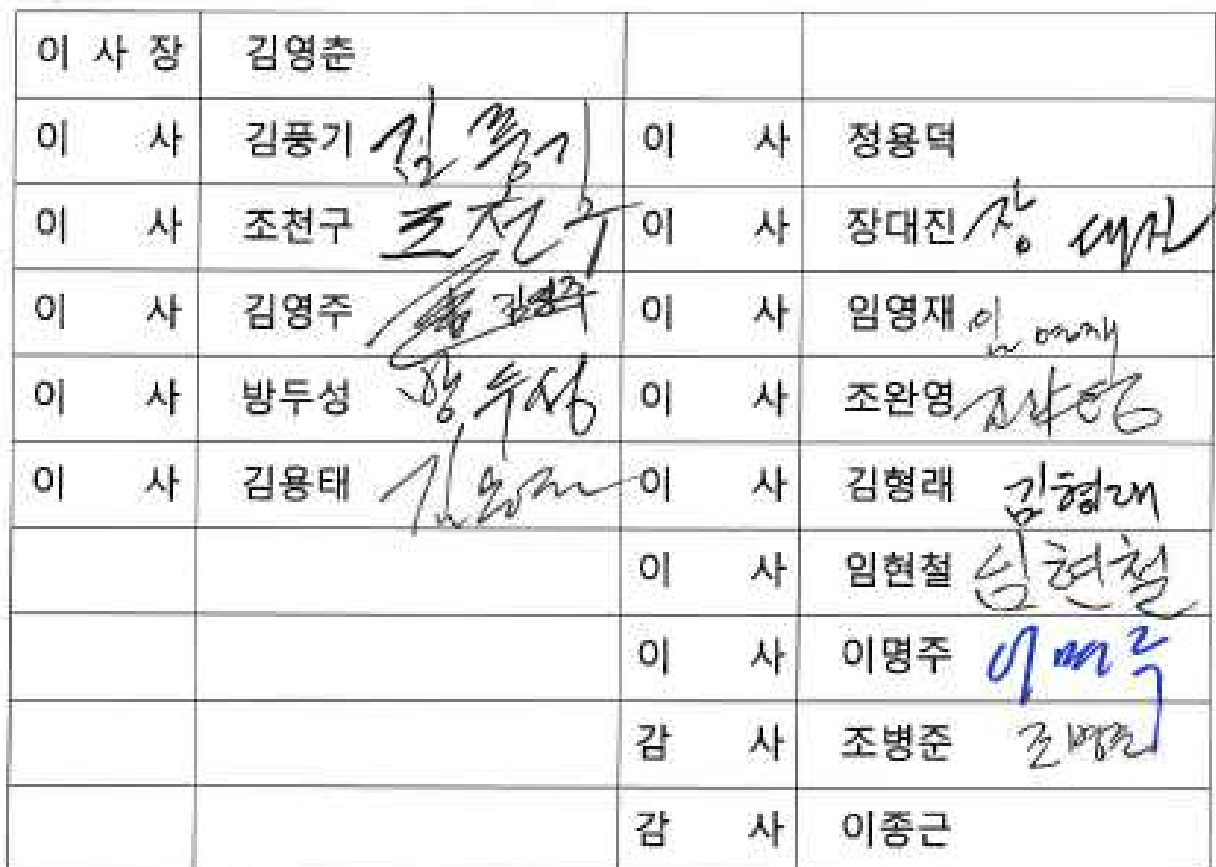 이 사 장 김영춘
이 사 김풍기 김풍기 이 사 정용덕
이 사 조천구 조천구 이 사 장대진 장 대진
이 사 김영주 김영주 이 사 임영재 임영재
이 사 방두성 방두성 이 사 조완영
이 사 김용태 김용태 이 사 김형래 김형래
이 사 임현철 임현철
이 사 이명주 이명주
감 사 조병준 조병준
감 사 이종근